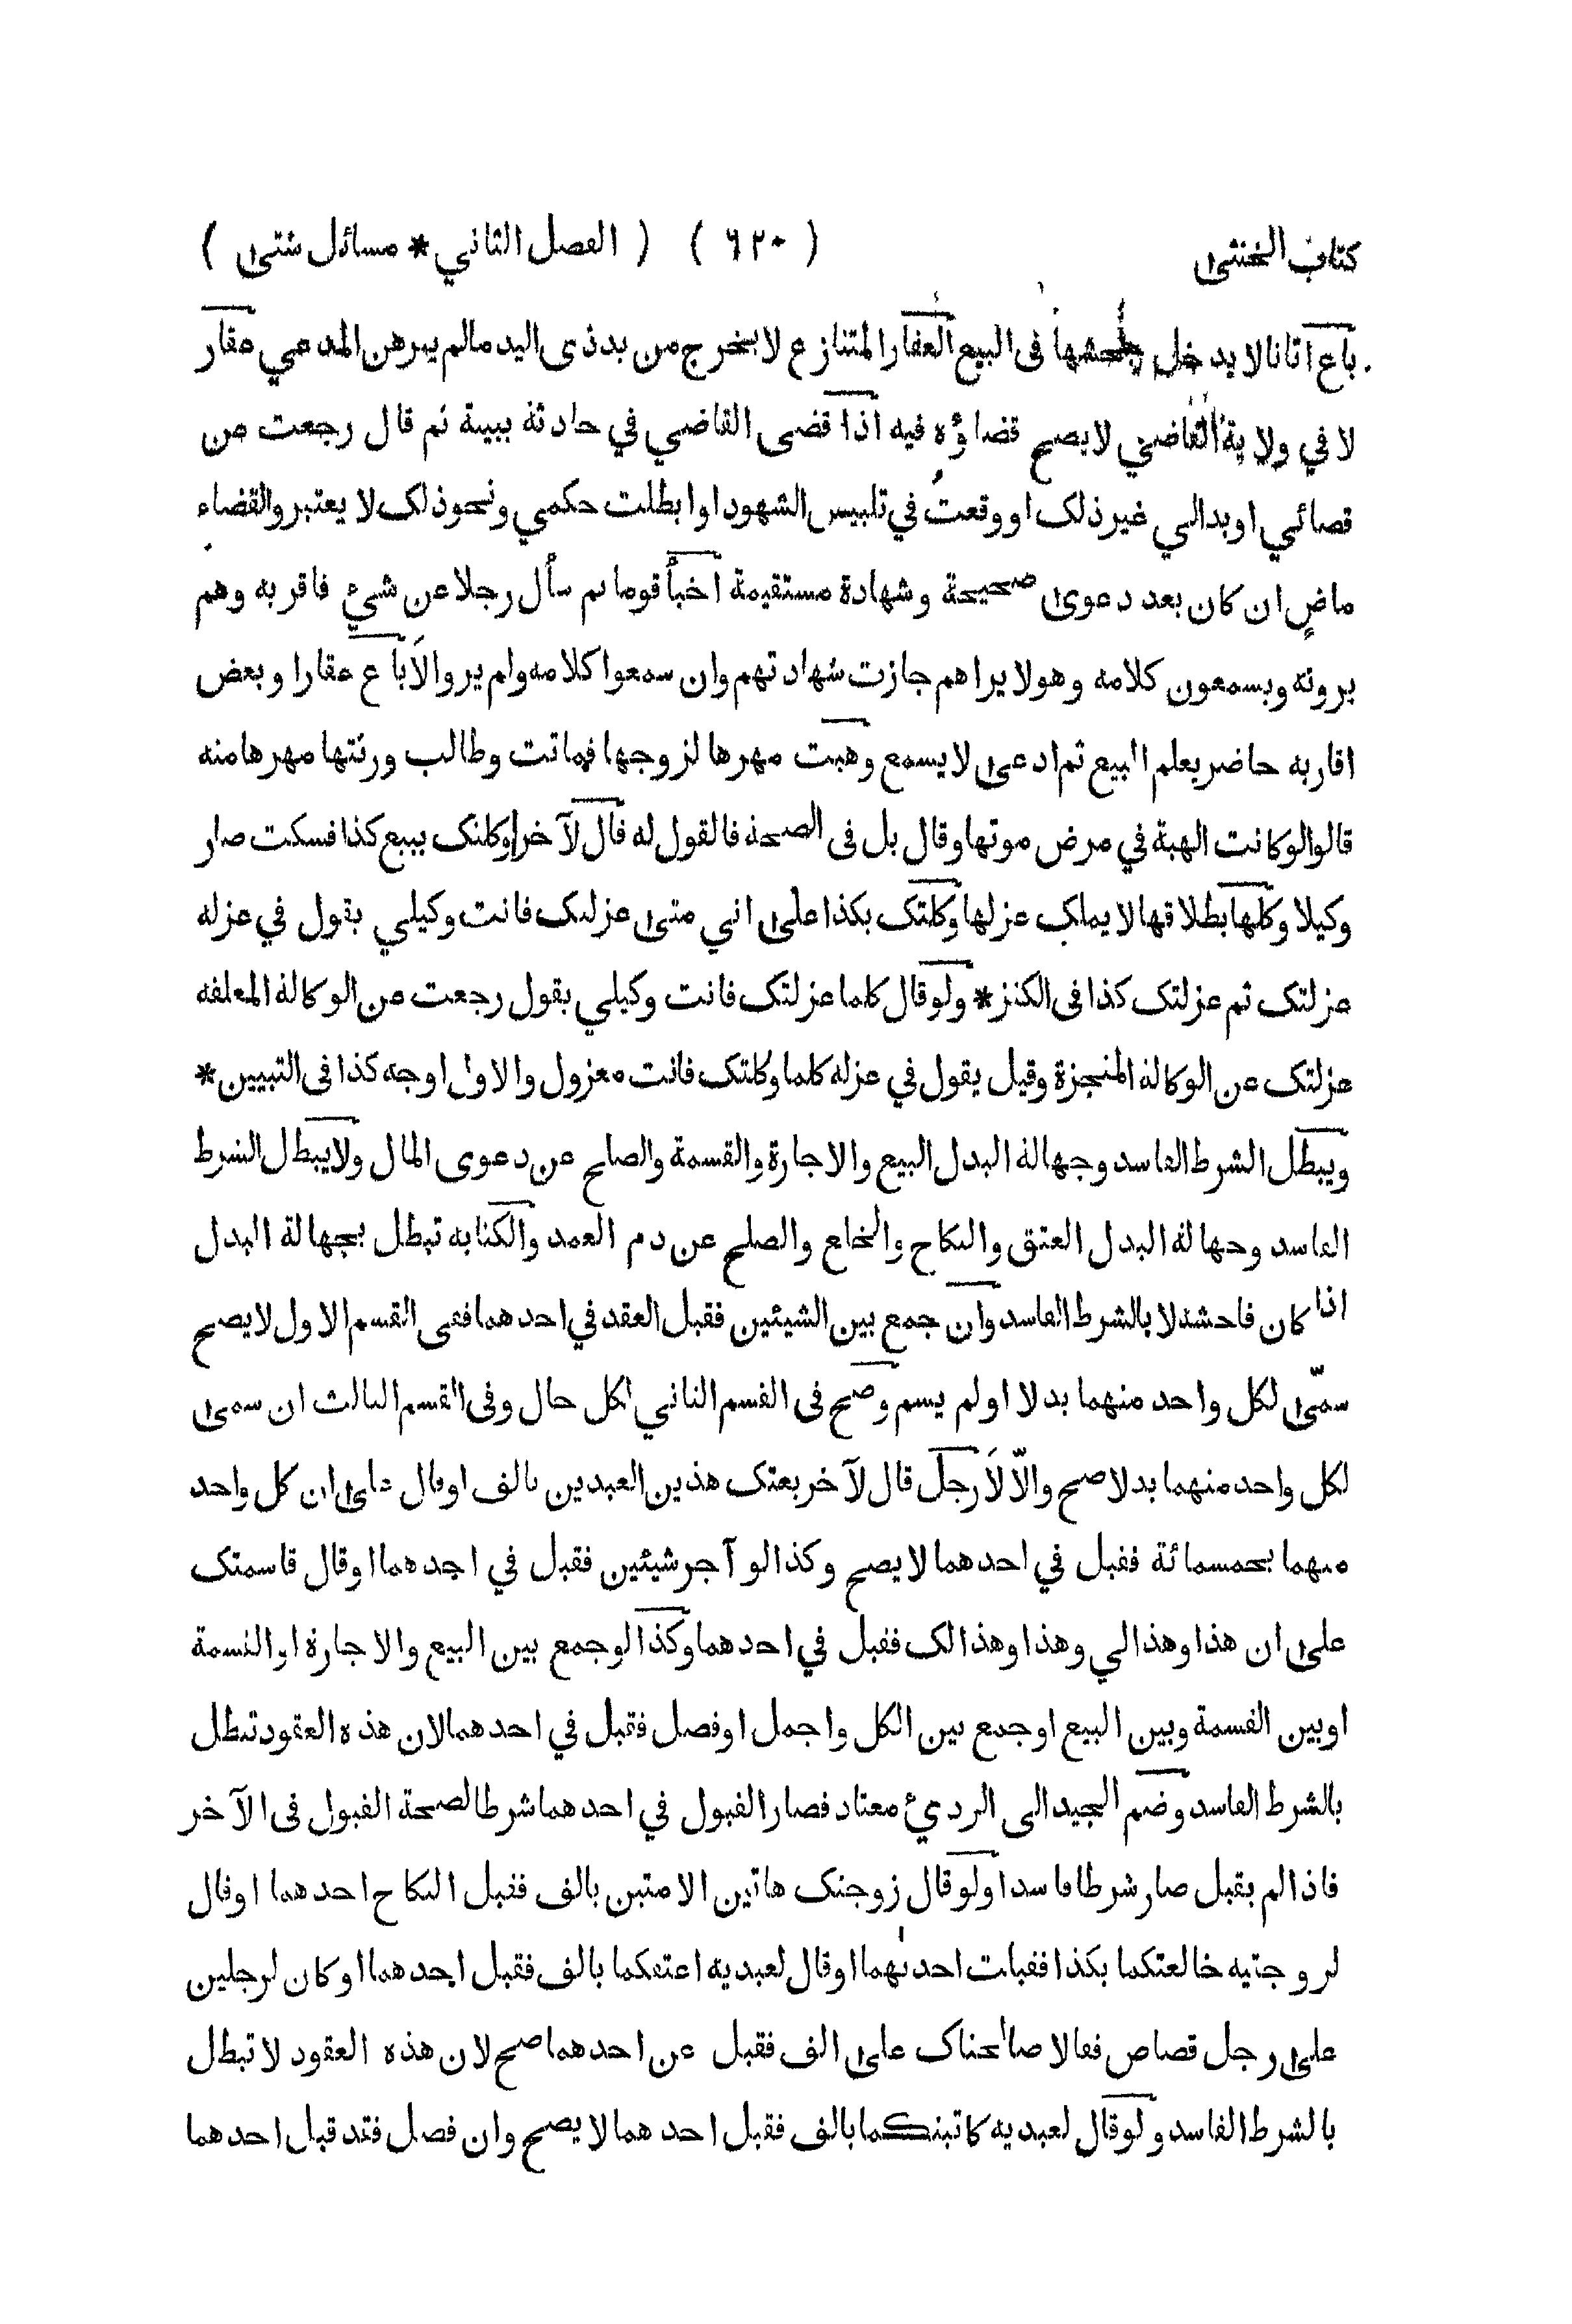 كتاب الخنثى ( ٦٢٠ ) ( الفصل الثاني * مسائل شتى )
باع اتانا لا يدخل جحشها فى البيع العقار المتنازع لا يخرج من يد ذى اليد مالم يبرهن المدعي عقار
لا في ولاية القاضي لا يصح قضاؤه فيه اذا قضى القاضي في حادثة ببينة ثم قال رجعت من
قضائي او بدالي غير ذلك او وقعت في تلبيس الشهود او ابطلت حكمي ونحو ذلك لا يعتبر والقضاء
ماضٍ ان كان بعد دعوى صحيحة وشهادة مستقيمة اخبأ قوما ثم سأل رجلا عن شيء فاقر به وهم
يرونه ويسمعون كلامه وهو لا يراهم جازت شهادتهم وان سمعوا كلامه ولم يروا لاَ باع عقارا وبعض
اقاربه حاضر يعلم البيع ثم ادعى لا يسمع وهبت مهرها لزوجها فماتت وطالب ورثتها مهرها منه
قالوا لو كانت الهبة في مرض موتها وقال بل فى الصحة فالقول له قال لآخر وكلتك ببيع كذا فسكت صار
وكيلا وكلها بطلاقها لا يملك عزلها وكلتك بكذا على اني متى عزلتك فانت وكيلي يقول في عزله
عزلتك ثم عزلتك كذا فى الكنز * ولو قال كلما عزلتك فانت وكيلي يقول رجعت عن الوكالة المعلقه
عزلتك عن الوكالة المنجزة وقيل يقول في عزله كلما وكلتك فانت معزول والاول اوجه كذا فى التبيين *
ويبطل الشرط الفاسد وجهالة البدل البيع والاجارة والقسمة والصلح عن دعوى المال ولا يبطل الشرط
الفاسد وجهالة البدل العتق والنكاح والخلع والصلح عن دم العمد والكتابه تبطل بجهالة البدل
اذا كان فاحشة لا بالشرط الفاسد وان جمع بين الشيئين فقبل العقد في احدهما ففى القسم الاول لا يصح
سمّى لكل واحد منهما بدلا او لم يسم وصح فى القسم الثاني لكل حال وفى القسم الثالث ان سمى
لكل واحد منهما بدلا صح والّا لاَ رجل قال لآخر بعتك هذين العبدين بالف او قال على ان كل واحد
منهما بخمسمائة فقبل في احدهما لا يصح وكذا لو آجر شيئين فقبل في احدهما او قال قاسمتك
على ان هذا وهذا لي وهذا وهذا لك فقبل في احدهما وكذا لو جمع بين البيع والاجارة او القسمة
او بين القسمة وبين البيع او جمع بين الكل واجمل او فصل فقبل في احدهما لان هذه العقود تبطل
بالشرط الفاسد وضم الجيد الى الرديء معتاد فصار القبول في احدهما شرطا لصحة القبول فى الآخر
فاذا لم يقبل صار شرطا فاسدا ولو قال زوجتك هاتين الامتين بالف فقبل النكاح احدهما او قال
لزوجتيه خالعتكما بكذا فقبلت احدٰهما او قال لعبديه اعتقكما بالف فقبل احدهما او كان لرجلين
على رجل قصاص فقالا صالحناك على الف فقبل عن احدهما صح لان هذه العقود لا تبطل
بالشرط الفاسد ولو قال لعبديه كاتبتكما بالف فقبل احدهما لا يصح وان فصل فقد قبل احدهما